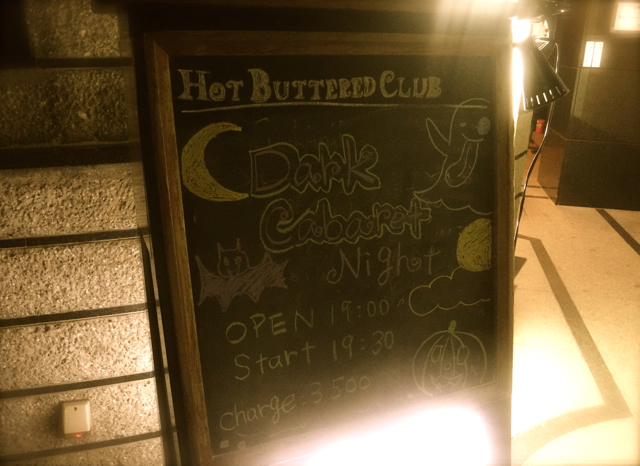 HOT BUTTERED CLUB
Dark
Cabaret
Night
OPEN 19:00~
Start 19:30
charge: 3.500